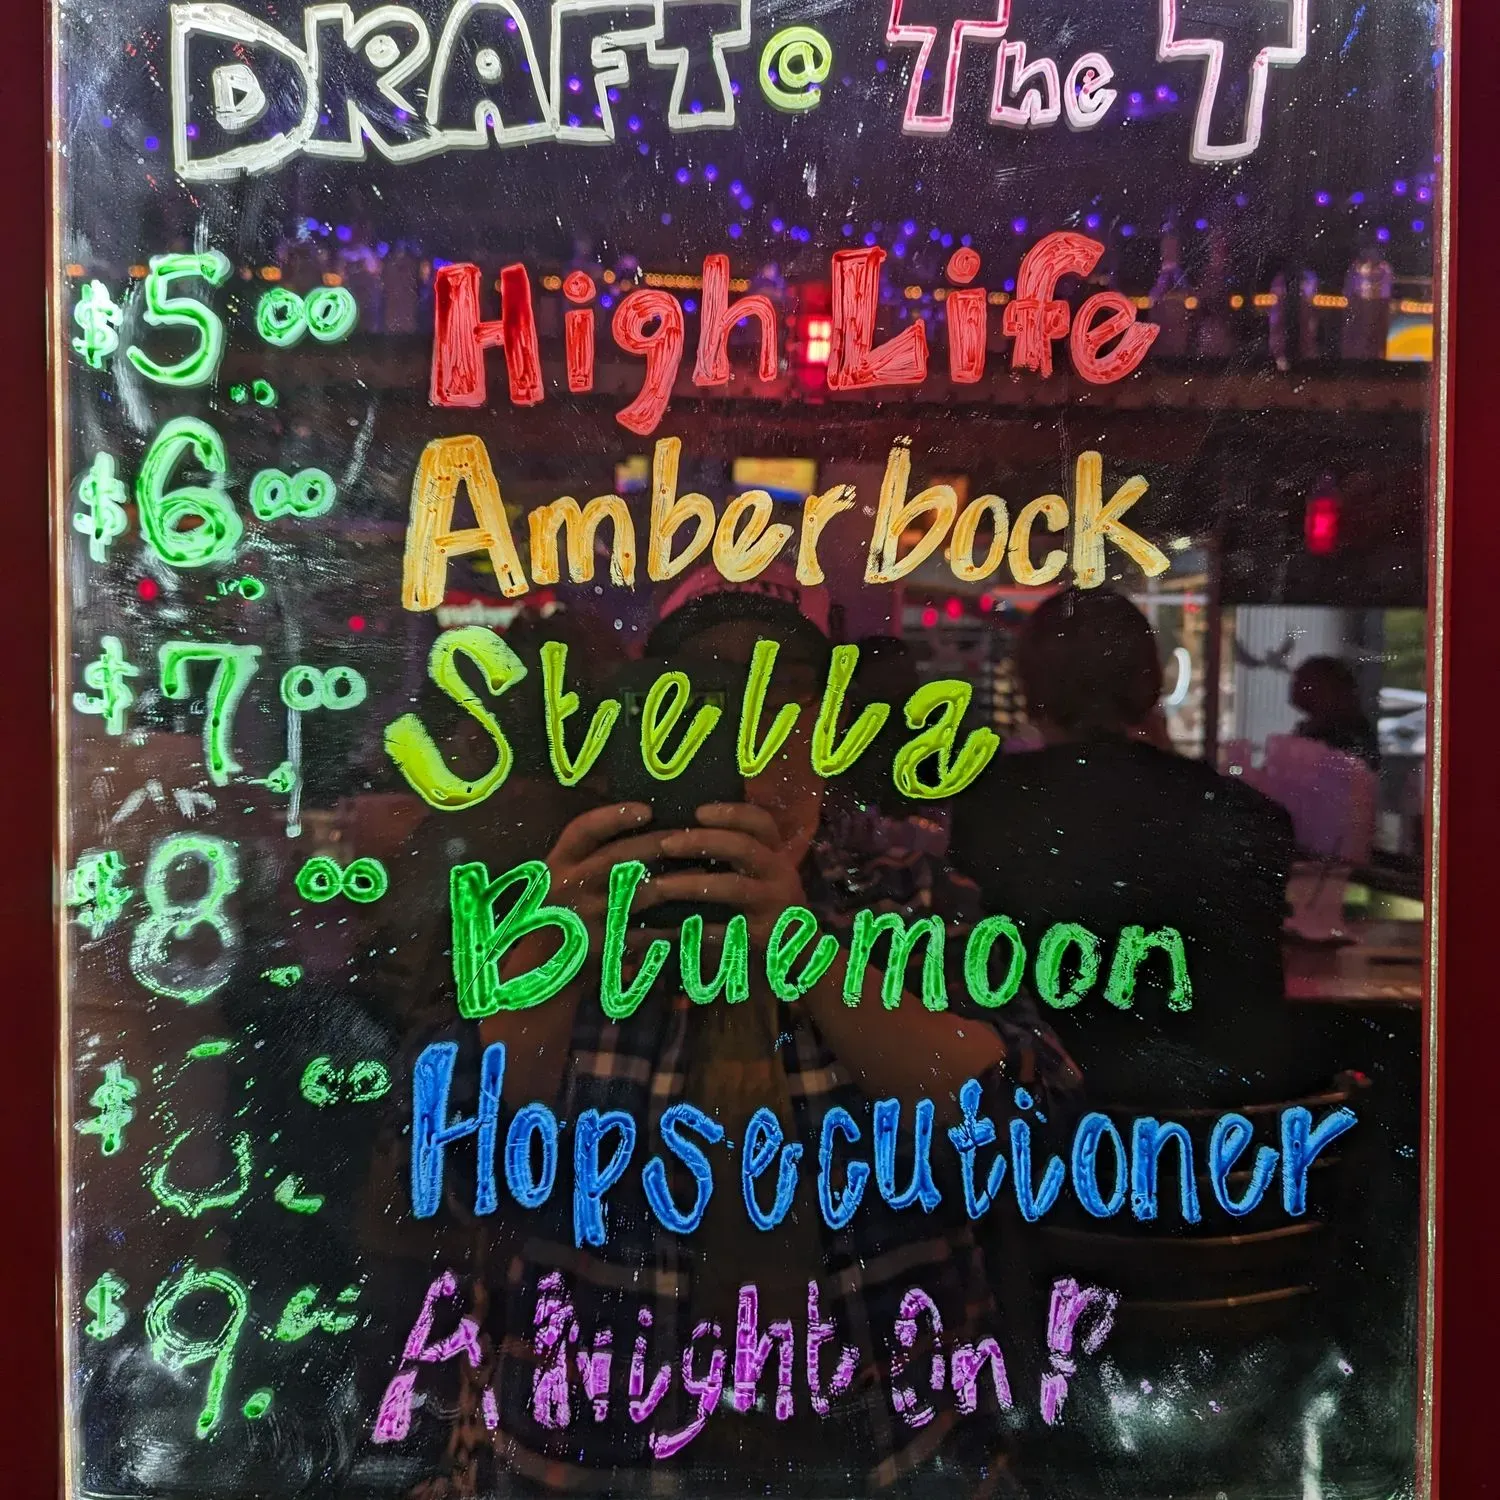 DRAFT @ The T
$5.00 High Life
$6.00 Amberbock
$7.00 Stella
$8.00 Bluemoon
$ .00 Hopsecutioner
$9. A Night On P